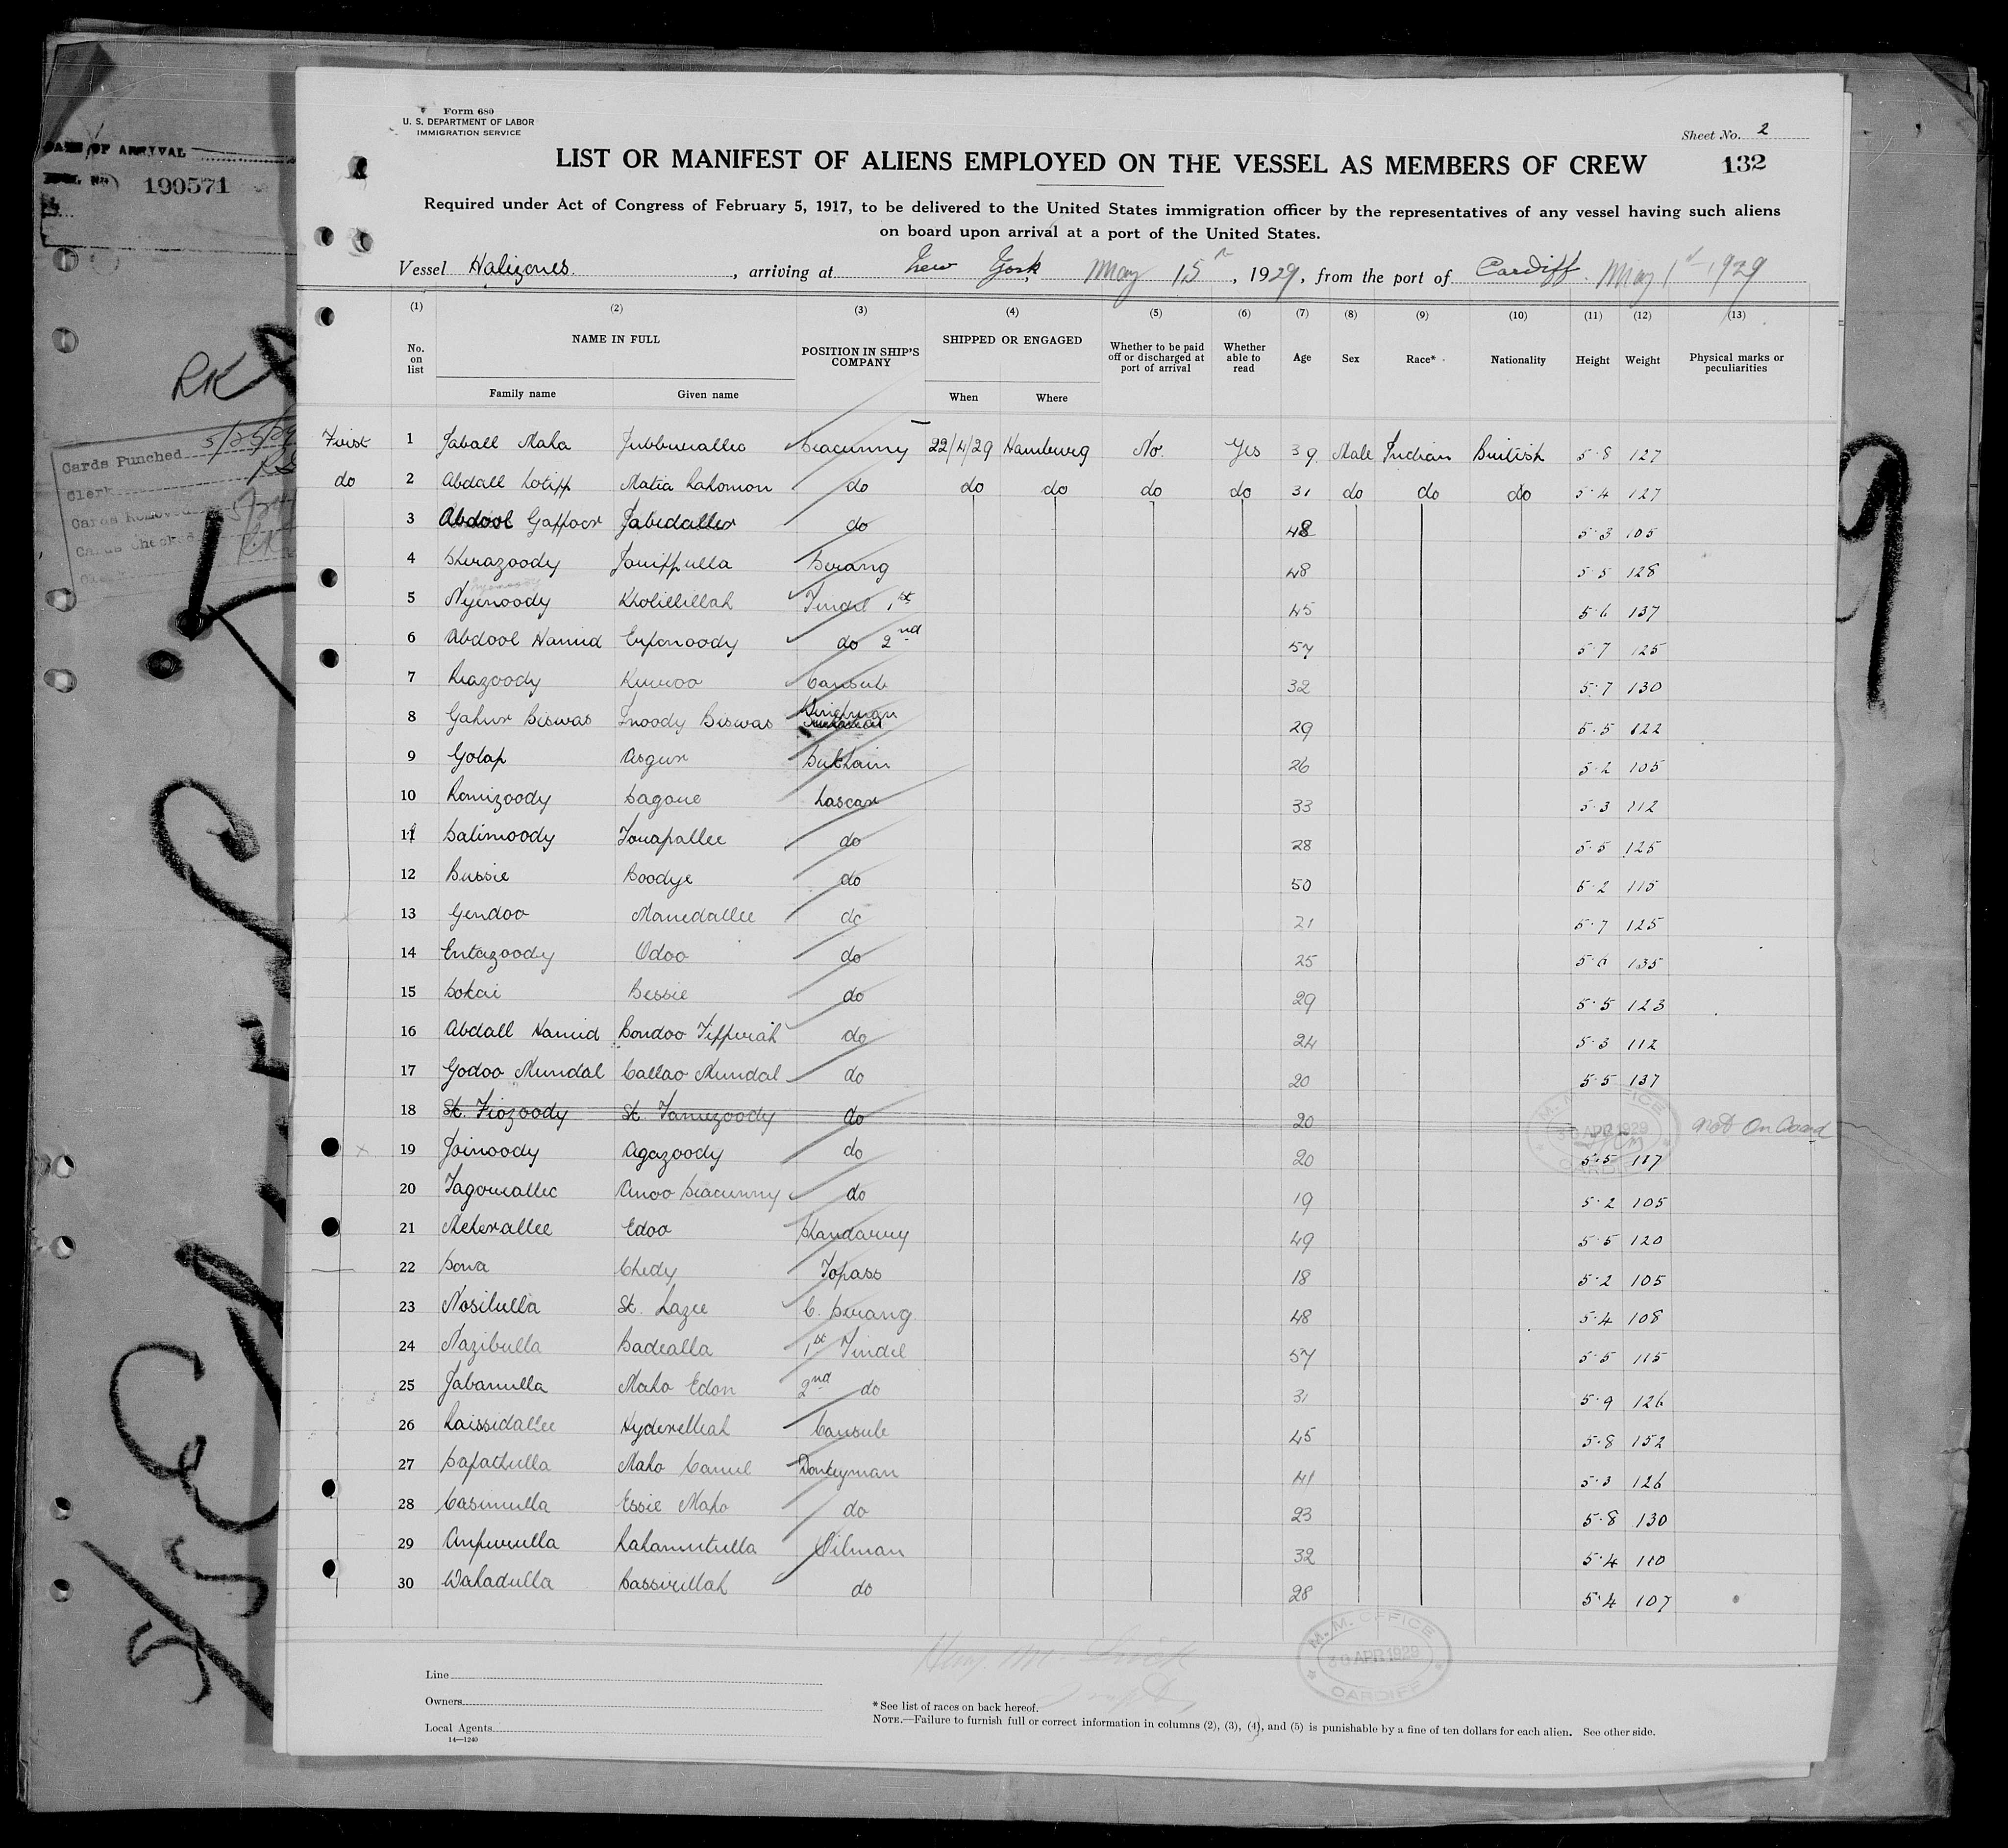 Form 680
U. S. DEPARTMENT OF LABOR
IMMIGRATION SERVICE
Sheet No. 2
LIST OR MANIFEST OF ALIENS EMPLOYED ON THE VESSEL AS MEMBERS OF CREW
132
Required under Act of Congress of February 5, 1917, to be delivered to the United States immigration officer by the representatives of any vessel having such aliens
on board upon arrival at a port of the United States.
Vessel Halizones, arriving at New York May 15th, 1929, from the port of Cardiff. May 1st 1929
(1) (2) (3) (4) (5) (6) (7) (8) (9) (10) (11) (12) (13)
No. on list NAME IN FULL POSITION IN SHIP'S COMPANY SHIPPED OR ENGAGED Whether to be paid off or discharged at port of arrival Whether able to read Age Sex Race* Nationality Height Weight Physical marks or peculiarities
Family name Given name When Where
First 1 Jaball Maha Jubburallee Seacunny 22/4/29 Hamburg No. Yes 39 Male Indian British 5·8 127
do 2 Abdall Lotiff Matia Rahomon do do do do do 31 do do do 5·4 127
3 Abdool Gaffoor Jabedaller do 48 5·3 105
4 Sherazoody Jouiffulla Serang 48 5·5 128
5 Nyenoody Kholillillah Tindel 1st 45 5·6 137
6 Abdool Hamid Erfonoody do 2nd 57 5·7 125
7 Reazoody Kurroo Cansub 32 5·7 130
8 Gahur Biswas Inoody Biswas Winchman 29 5·5 122
9 Golap Asgur Sukhain 26 5·2 105
10 Romizoody Sagoue Lascar 33 5·3 112
11 Salimoody Touapallee do 28 5·5 125
12 Bussie Boodye do 50 5·2 115
13 Gendoo Manedallee do 21 5·7 125
14 Entazoody Odoo do 25 5·6 135
15 Sokai Bessie do 29 5·5 123
16 Abdall Hamid Bondoo Tifferah do 24 5·3 112
17 Godoo Mundal Callao Mundal do 20 5·5 137
18 Sk. Fiozoody Sk. Tamezoody do 20 not on board
19 Joinoody Agazoody do 20 5·5 117
20 Tagomallee Anoo Seacunny do 19 5·2 105
21 Meherallee Edoo Bhandarry 49 5·5 120
22 Sova Chedy Topass 18 5·2 105
23 Nosibulla Sk. Lazee C. Serang. 48 5·4 108
24 Nazibulla Badealla 1st Tindel 57 5·5 115
25 Jabanulla Maho Edon 2nd do 31 5·9 126
26 Raissidallee Hyderelleah Cansub 45 5·8 152
27 Safathulla Maho Camel Donkeyman 41 5·3 126
28 Casimulla Essie Maho do 23 5·8 130
29 Anfurulla Rahamutulla Oilman 32 5·4 110
30 Wahadulla Bassirillah do 28 5·4 107
Line
Owners
Local Agents
14—1240
*See list of races on back hereof.
NOTE.—Failure to furnish full or correct information in columns (2), (3), (4), and (5) is punishable by a fine of ten dollars for each alien. See other side.
M. M. OFFICE
30 APR 1929
CARDIFF
190571
RK
Cards Punched 5/25/29
Clerk
Cards Removed
Cards Checked